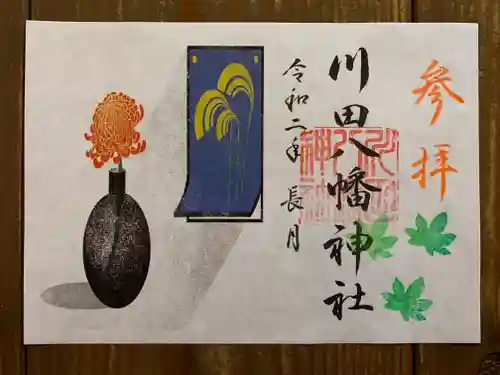 參拝
川田八幡神社
令和二年 長月